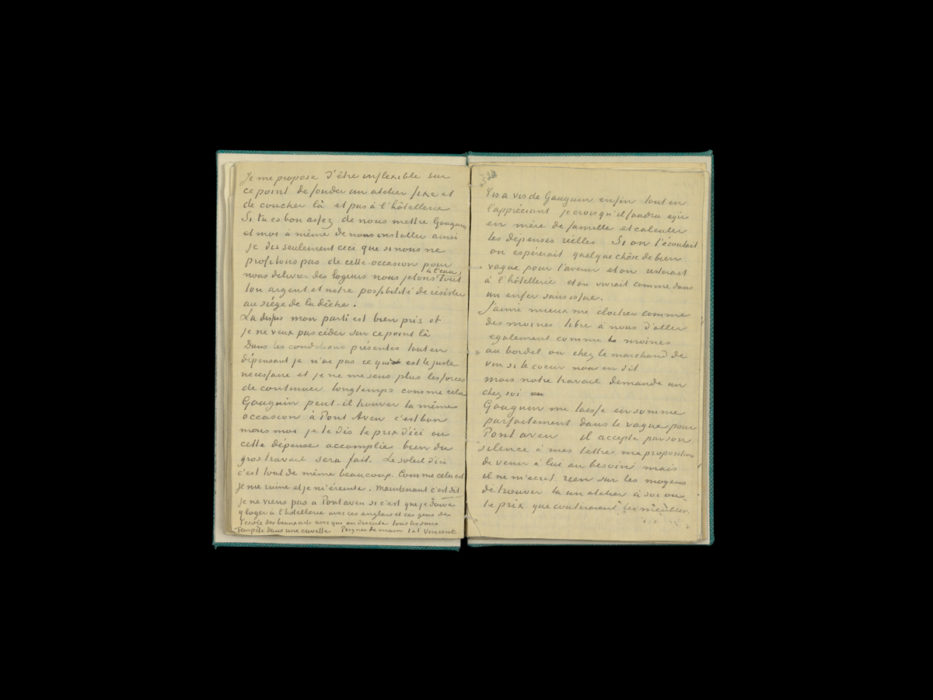 Je me propose d'être inflexible sur
ce point de fonder un atelier fixe et
de coucher là et pas à l'hôtellerie
Si tu es bon assez de nous mettre Gauguin
et moi à même de nous installer ainsi
je dis seulement ceci que si nous ne
profitons pas de cette occasion pour
nous delivrer des logeurs nous jetons à l'eau, tout
ton argent et notre possibilité de résister
au siège de la dèche.
La dessus mon parti est bien pris et
je ne veux pas céder sur ce point là
Dans les conditions présentes tout en
dépensant je n'ai pas ce qui est le juste
necessaire et je ne me sens plus les forces
de continuer longtemps comme cela
Gauguin peut-il trouver la même
occasion à Pont Aven c'est bon
mais moi je te dis le prix d'ici ou
cette dépense accomplie bien du
gros travail sera fait. Le soleil d'ici
c'est tout de même beaucoup. Comme cela est
je me ruine et je m'éreinte. Maintenant c'est dit
je ne viens pas a Pontaven si c'est que je doive
y loger à l'hôtellerie avec ces anglais et ces gens de
l'ecole des beauxarts avec qui on discute tous les soirs
Tempête dans une cuvette Poignee de main t.à t. Vincent
Vis à vis de Gauguin enfin tout en
l'appréciant je crois qu'il faudra agir
en mère de famille et calculer
les depenses réelles. Si on l'écoutait
on espérerait quelque chôse de bien
vague pour l'avenir et on resterait
à l'hôtellerie et on vivrait comme dans
un enfer sans issue.
J'aime mieux me cloitrer comme
des moines libre à nous d'aller
egalement comme les moines
au bordel ou chez le marchand de
vin si le coeur nous en dit
mais notre travail demande un
chez soi
Gauguin me laisse en somme
parfaitement dans le vague pour
Pont aven il accepte par son
silence à mes lettres ma proposition
de venir à lui au besoin mais
il ne m'ecrit rien sur les moyens
de trouver là un atelier à soi ou
le prix que couterait